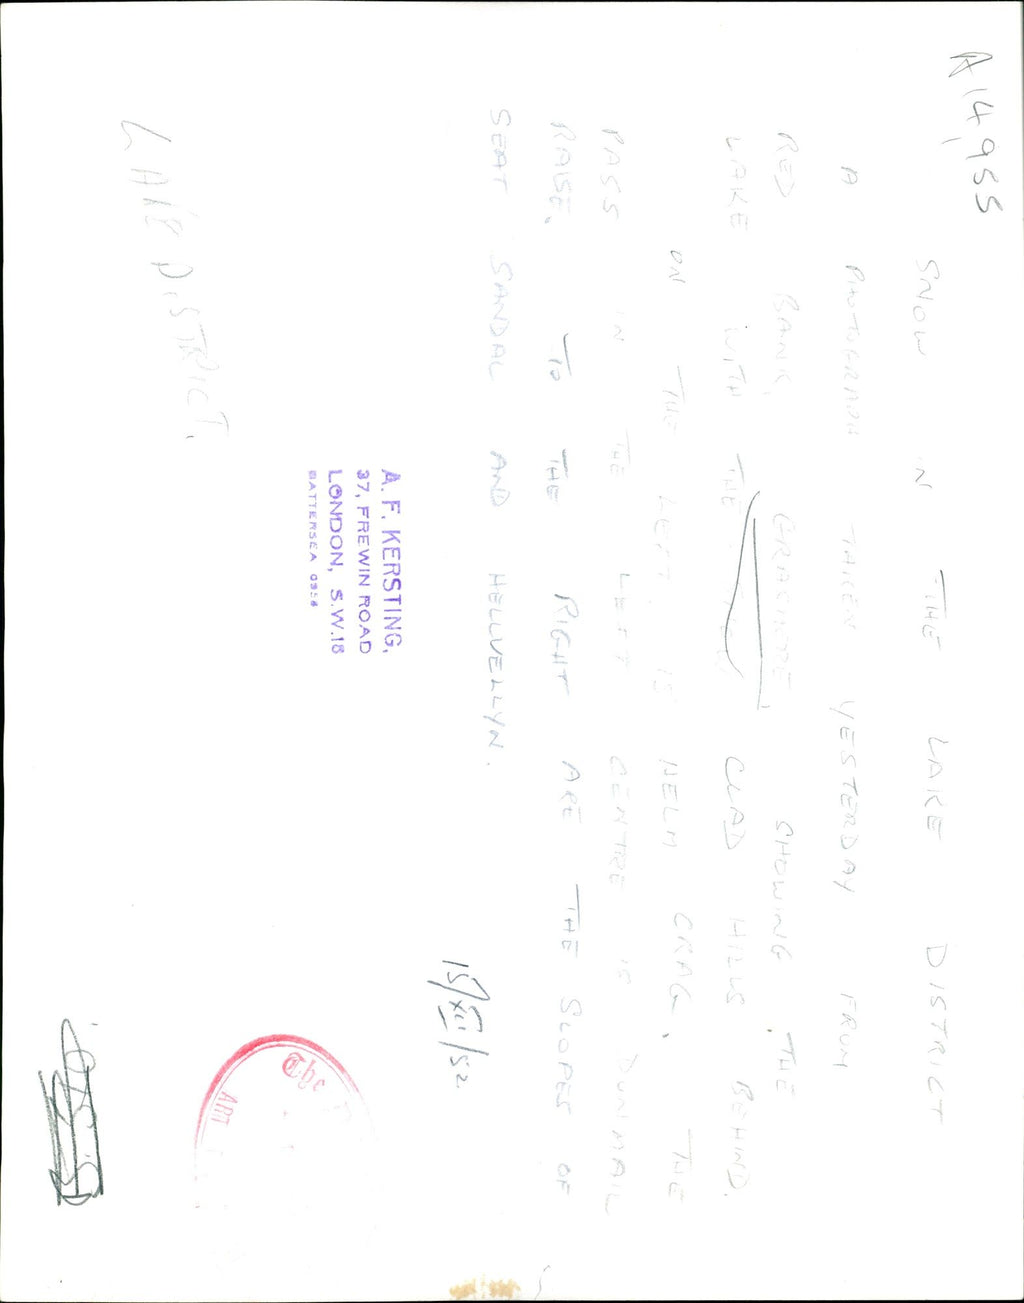 A14,955
SNOW IN THE LAKE DISTRICT
A PHOTOGRAPH TAKEN YESTERDAY FROM
RED BANK, GRASMERE, SHOWING THE
LAKE WITH THE CLAD HILLS BEHIND.
ON THE LEFT IS HELM CRAG, THE
PASS IN THE LEFT CENTRE IS DUNMAIL
RAISE. TO THE RIGHT ARE THE SLOPES OF
SEAT SANDAL AND HELLVELLYN.
15/XII/52
A. F. KERSTING,
37, FREWIN ROAD
LONDON, S.W.18
BATTERSEA
LAKE DISTRICT.
The
ART